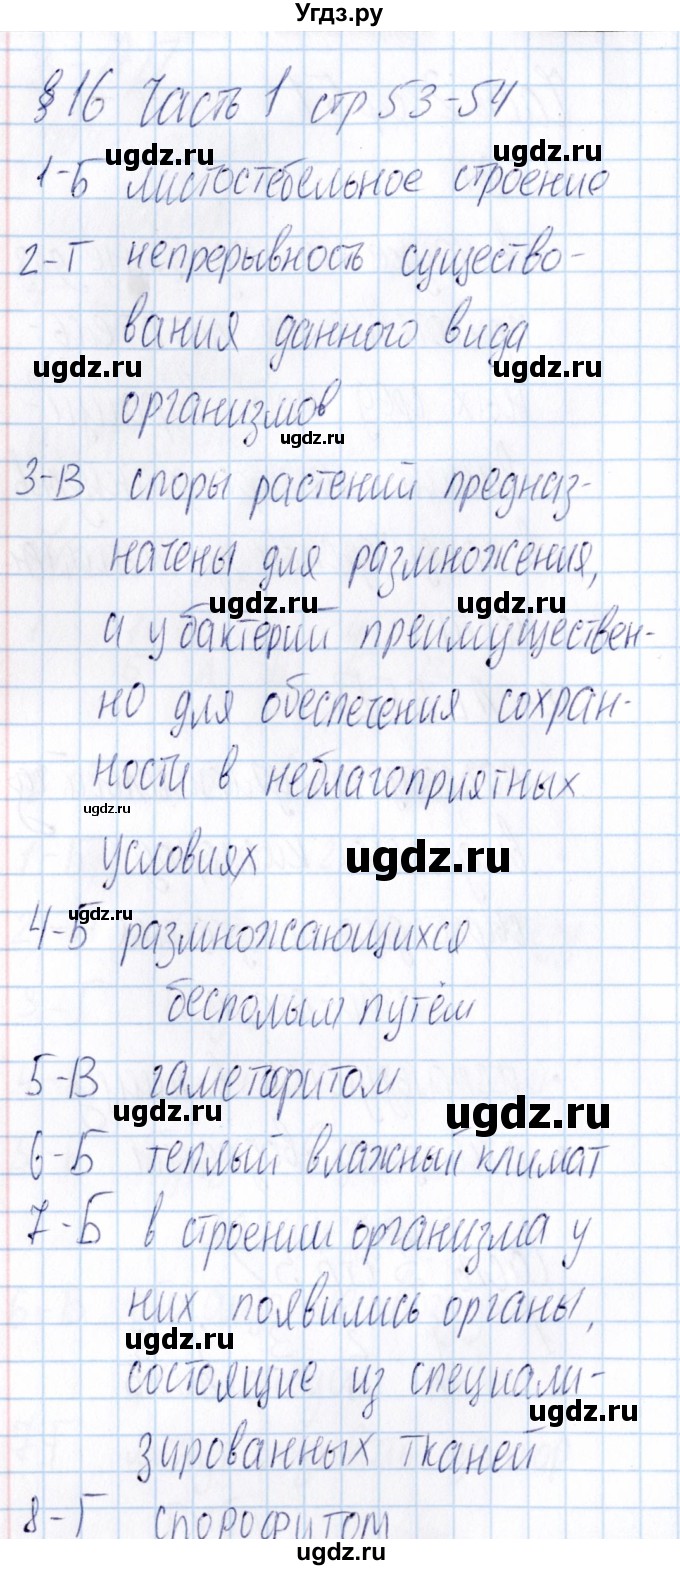 Угдз.ру
§ 16 Часть 1 стр 53-54
ugdz.ru ugdz.ru
1-Б листостебельное строение
2-Г непрерывность существо-
вания данного вида
ugdz.ru ugdz.ru
организмов
ugdz.ru
3-В споры растений предназ-
начены для размножения,
ugdz.ru ugdz.ru
а у бактерий преимуществен-
но для обеспечения сохран-
ности в неблагоприятных
ugdz.ru
условиях ugdz.ru
ugdz.ru
4-Б размножающихся
бесполым путём
5-В гаметофитом
ugdz.ru ugdz.ru
6-Б теплый влажный климат
7-Б в строении организма у
них появились органы,
ugdz.ru
состоящие из специали-
ugdz.ru
зированных тканей
8-Г спорофитом
ugdz.ru